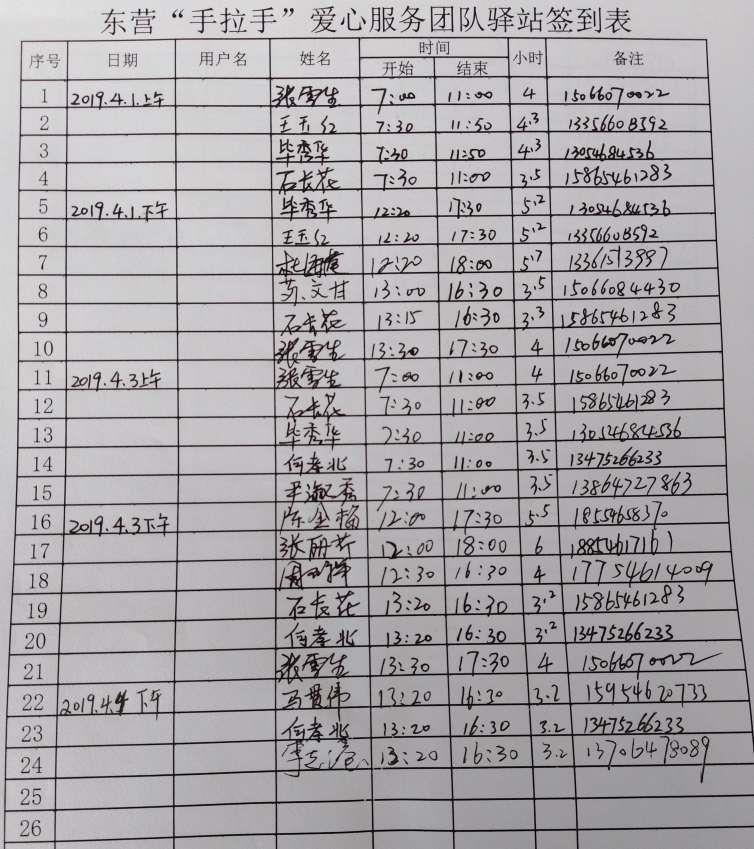 东营“手拉手”爱心服务团队驿站签到表
序号 日期 用户名 姓名 时间 小时 备注
开始 结束
1 2019.4.1上午 张雪生 7:00 11:00 4 15066070022
2 王玉红 7:30 11:50 4.3 13356608592
3 毕秀华 7:30 11:50 4.3 13054684536
4 石长花 7:30 11:00 3.5 15865461283
5 2019.4.1.下午 毕秀华 12:20 17:30 5.2 13054684536
6 王玉红 12:20 17:30 5.2 13356608592
7 12:20 18:00 5.7
8 苏文甘 13:00 16:30 3.5 15066084430
9 石长花 13:15 16:30 3.3 15865461283
10 张雪生 13:30 17:30 4 15066070022
11 2019.4.3上午 张雪生 7:00 11:00 4 15066070022
12 石长花 7:30 11:00 3.5 15865461283
13 毕秀华 7:30 11:00 3.5 13054684536
14 何孝北 7:30 11:00 3.5 13475266233
15 7:30 11:00 3.5 13864727863
16 2019.4.3下午 陈金梅 12:00 17:30 5.5 18554658370
17 张丽芹 12:00 18:00 6 18854617161
18 12:30 16:30 4 17754614009
19 石长花 13:20 16:30 3.2 15865461283
20 何孝北 13:20 16:30 3.2 13475266233
21 张雪生 13:30 17:30 4 15066070022
22 2019.4.4下午 马贵伟 13:20 16:30 3.2 15954620733
23 何孝北 13:20 16:30 3.2 13475266233
24 13:20 16:30 3.2 13706478089
25
26